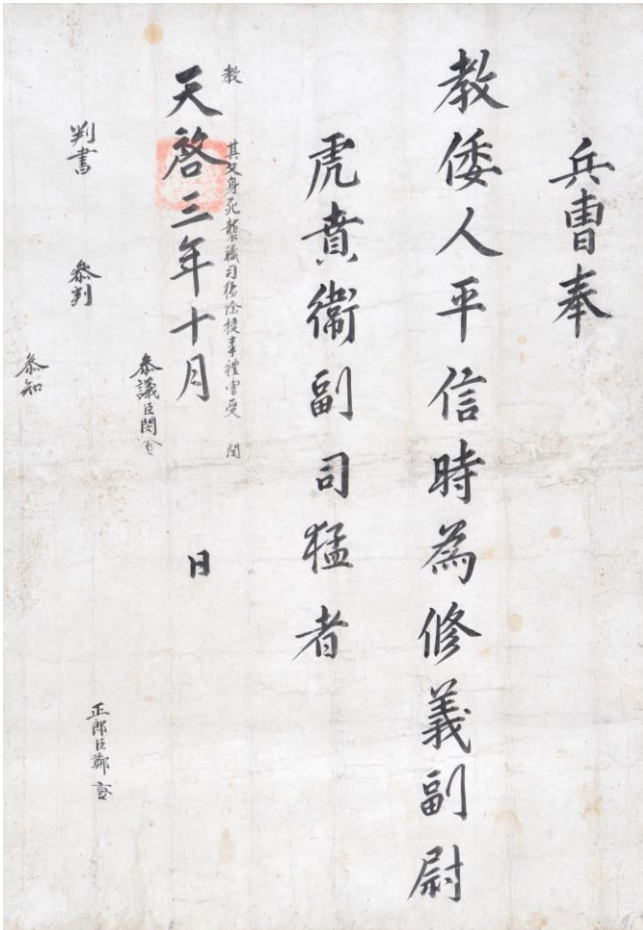 兵曺奉
教倭人平信時為修義副尉
虎賁衛副司猛者
教 其父身死襲職司猛除授事禮曺受 関
天啓三年十月 日
判書
叅判
叅議臣閔
叅知
正郎臣鄭